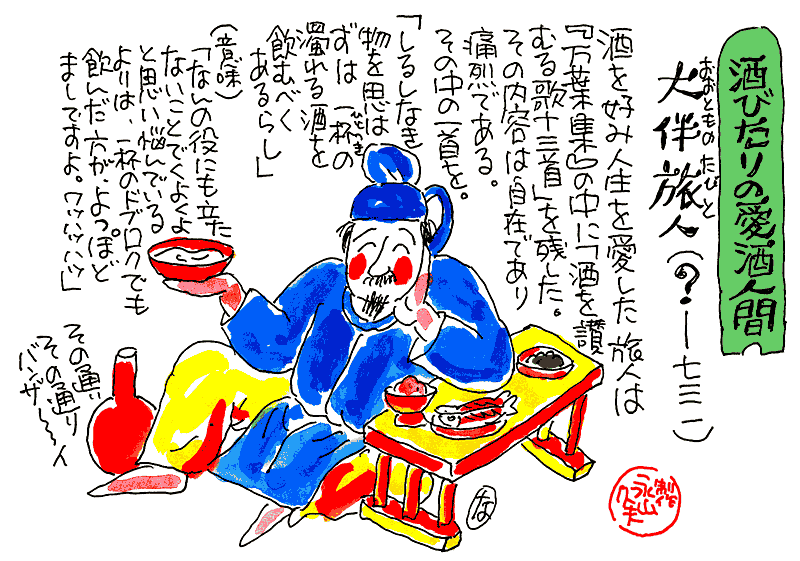 酒びたりの愛酒人間
おおとものたびと
大伴旅人(?—七三一)
酒を好み人生を愛した旅人は
『万葉集』の中に「酒を讃
むる歌十三首」を残した。
その内容は自在であり
痛烈である。
その中の一首を。
「しるしなき
物を思はずは一杯の
ひとつき
濁れる酒を
飲むべく
あるらし」
(意味)
「なんの役にも立た
ないことでくよくよ
と思い悩んでいる
よりは、一杯のドブロクでも
飲んだ方が、よっぽど
ましですよ。ワッハッハッ」
その通り
その通り
バンザ〜〜イ
な
制作
永山久夫